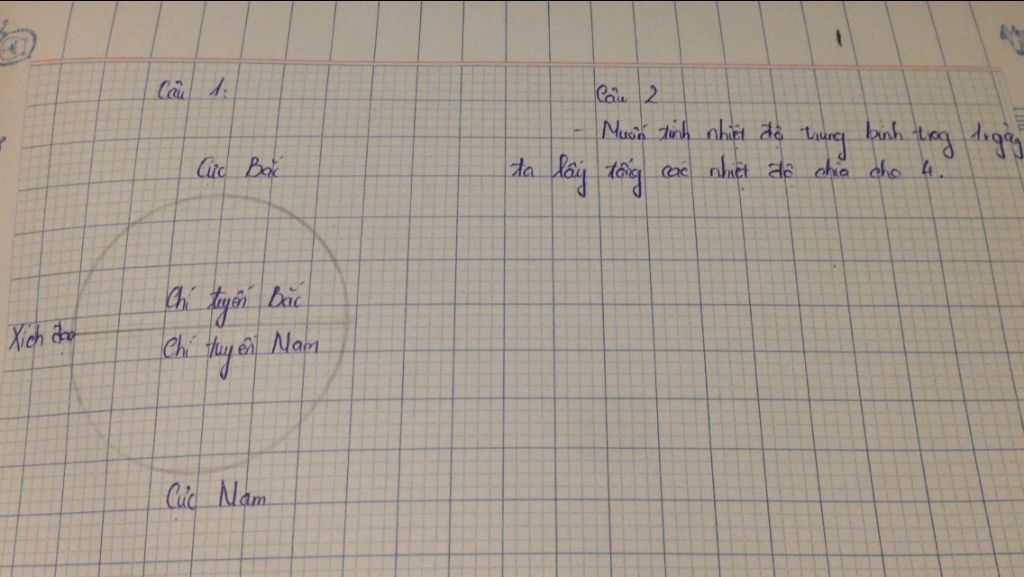 Câu 1:
Cực Bắc
Chí tuyến Bắc
Xích đạo
Chí tuyến Nam
Cực Nam
Câu 2
- Muốn tính nhiệt độ trung bình trog 1 ngày
ta lấy tổng các nhiệt độ chia cho 4.